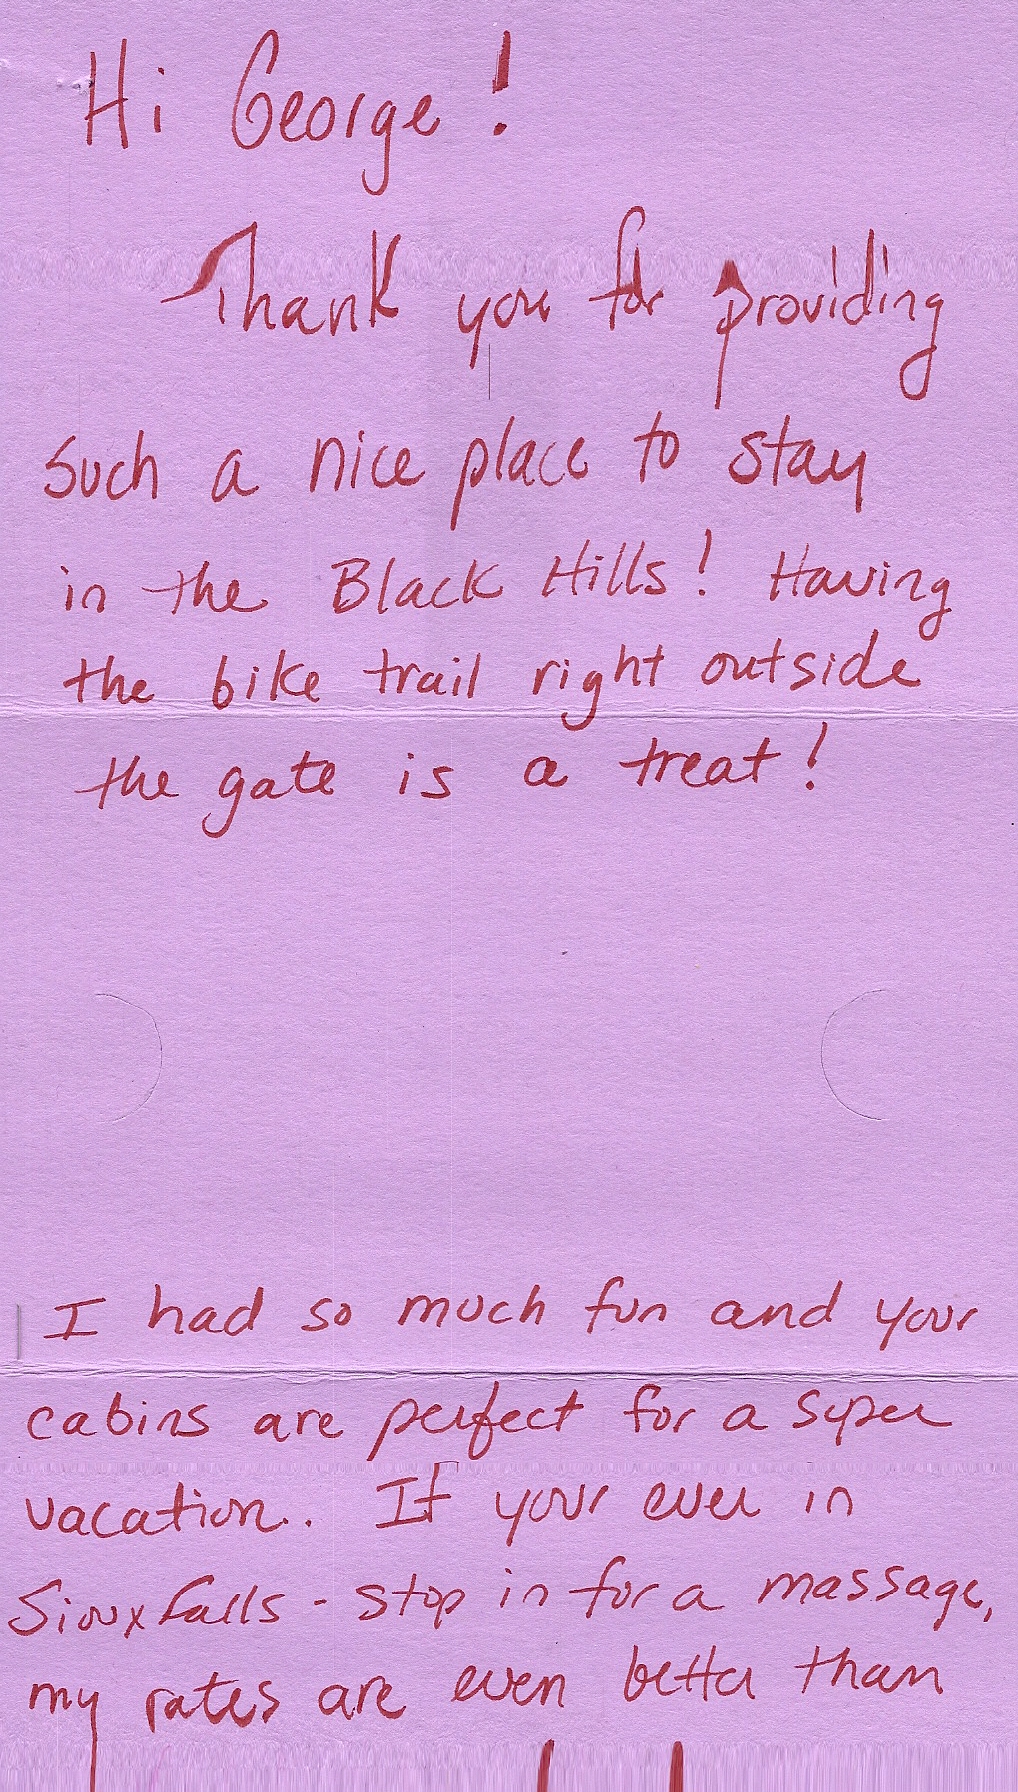 Hi George!
Thank you for providing
such a nice place to stay
in the Black Hills! Having
the bike trail right outside
the gate is a treat!
I had so much fun and your
cabins are perfect for a super
vacation.. If your ever in
Sioux Falls - stop in for a massage,
my rates are even better than